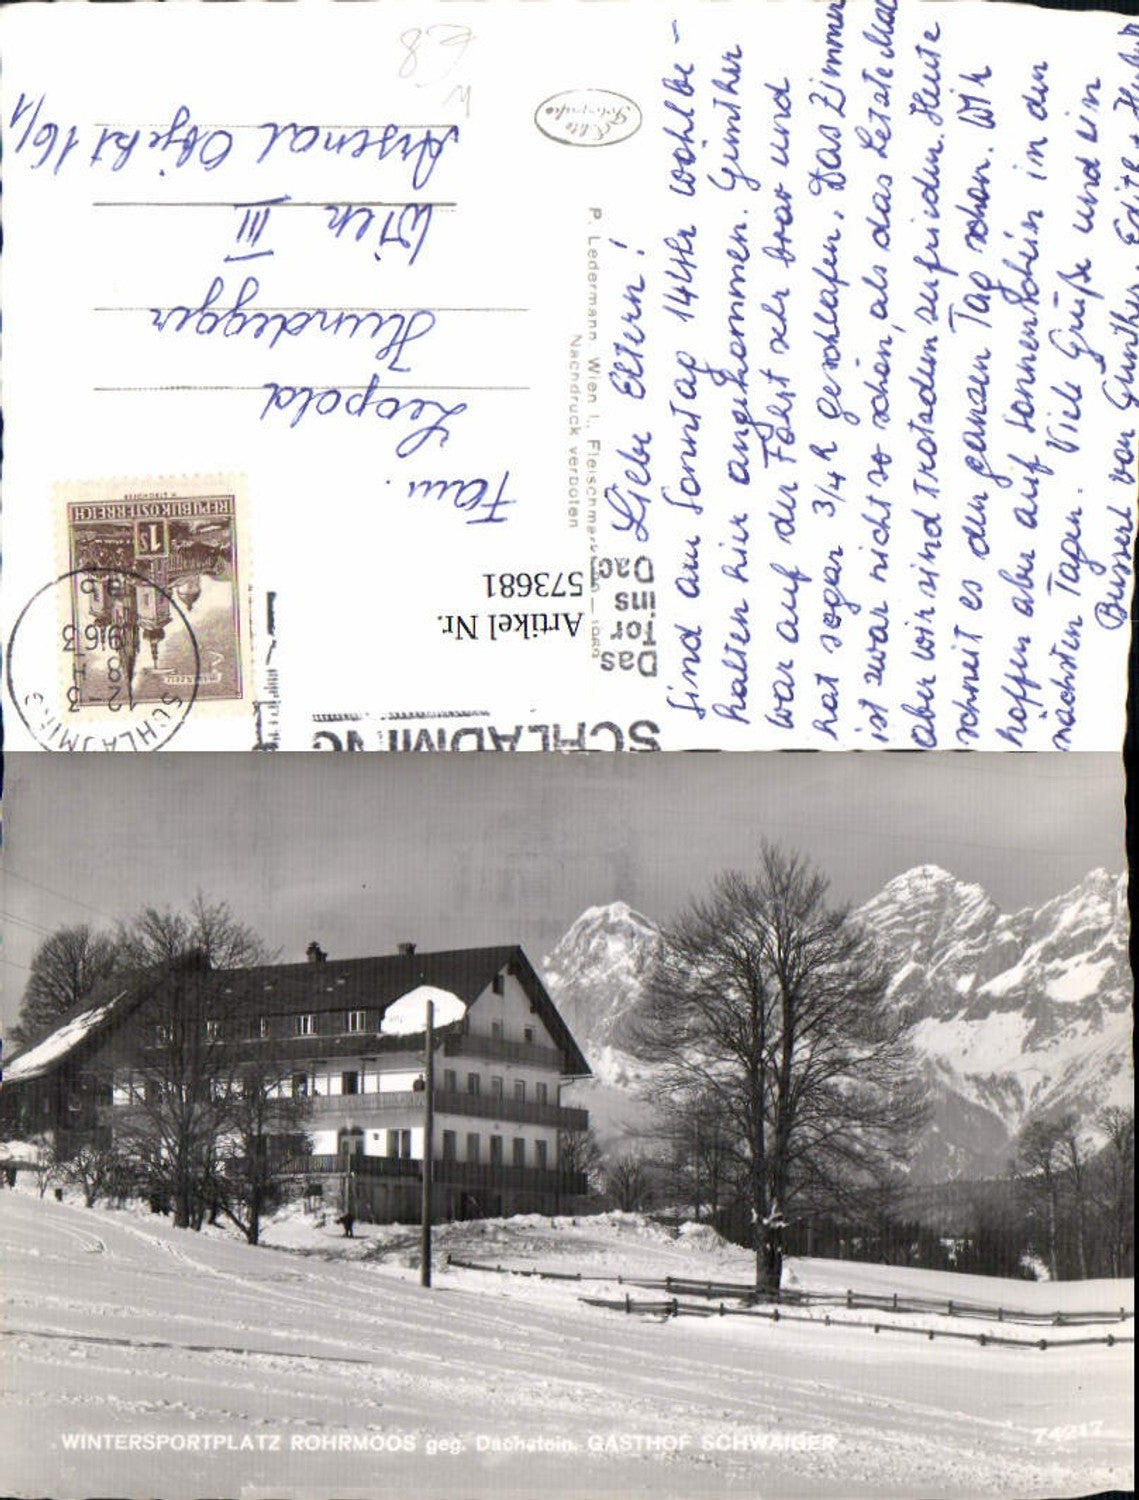 Liebe Eltern!
Sind am Sonntag 14 Uhr wohlbe-
halten hier angekommen. Günther
war auf der Fahrt sehr brav und
hat sogar 3/4 h geschlafen. Das Zimmer
ist zwar nicht so schön, als das letzte Mal
aber wir sind trotzdem zufrieden. Heute
schneit es den ganzen Tag schon. Wir
hoffen aber auf Sonnenschein in den
nächsten Tagen. Viele Grüße und ein
Busserl von Günther, Edith +
P. Ledermann, Wien I., Fleischmarkt
Nachdruck verboten
Echte
Fotografie
SCHLADMING
Das
Tor
ins
Dac
Artikel Nr.
573681
SCHLADMING
REPUBLIK ÖSTERREICH
1S
Fam.
Leopold
Hundegger
Wien III
Arsenal Objekt 16/1
WINTERSPORTPLATZ ROHRMOOS geg. Dachstein. GASTHOF SCHWAIGER
74917